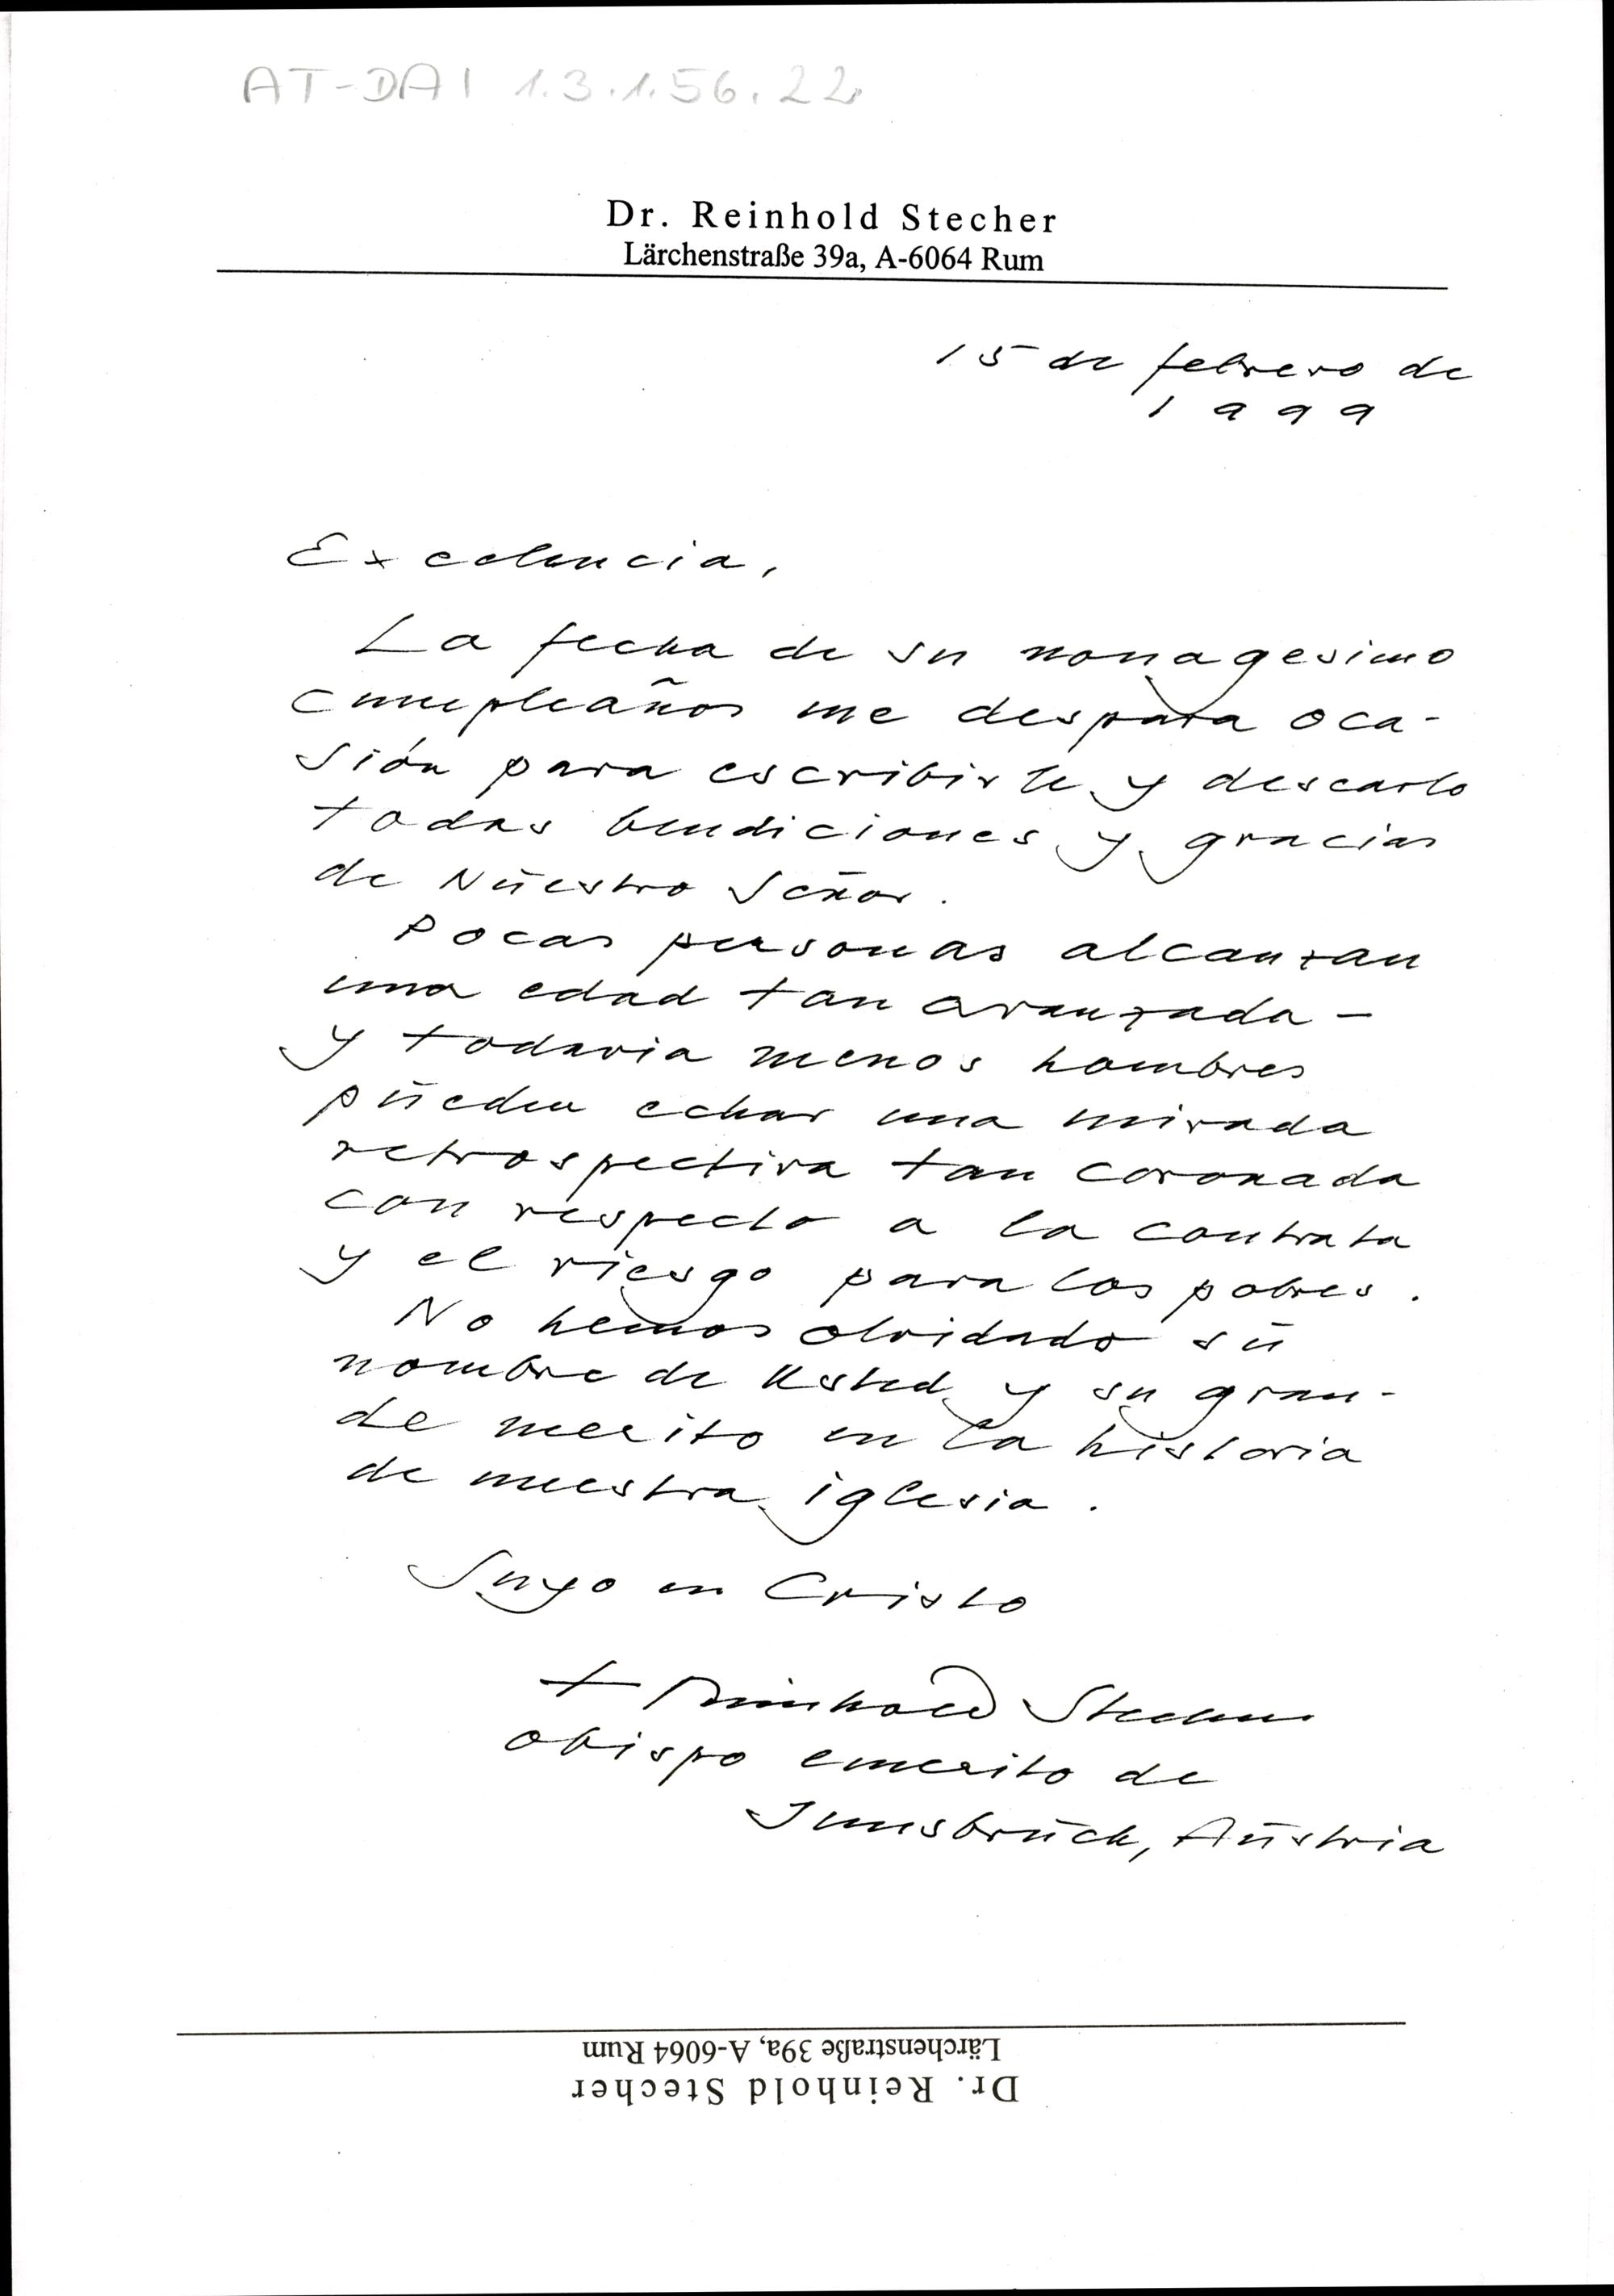 AT-DAI 1.3.1.56.22
Dr. Reinhold Stecher
Lärchenstraße 39a, A-6064 Rum
15 de febrero de
1999
Excelencia,
La fecha de su nonagesimo
cumpleaños me despara oca-
sión para escribirle y desearlo
todas bendiciones y gracias
de Nuestro Señor.
Pocas personas alcanzan
una edad tan avanzada -
y todavia menos hombres
pueden echar una mirada
retrospectiva tan coronada
con respecto a la contrata
y el riesgo para los pobres.
No hemos olvidado su
nombre de Usted y su gran-
de merito en la historia
de nuestra iglesia.
Suyo en Cristo
+ Reinhold Stecher
obispo emerito de
Innsbruck, Austria
Lärchenstraße 39a, A-6064 Rum
Dr. Reinhold Stecher